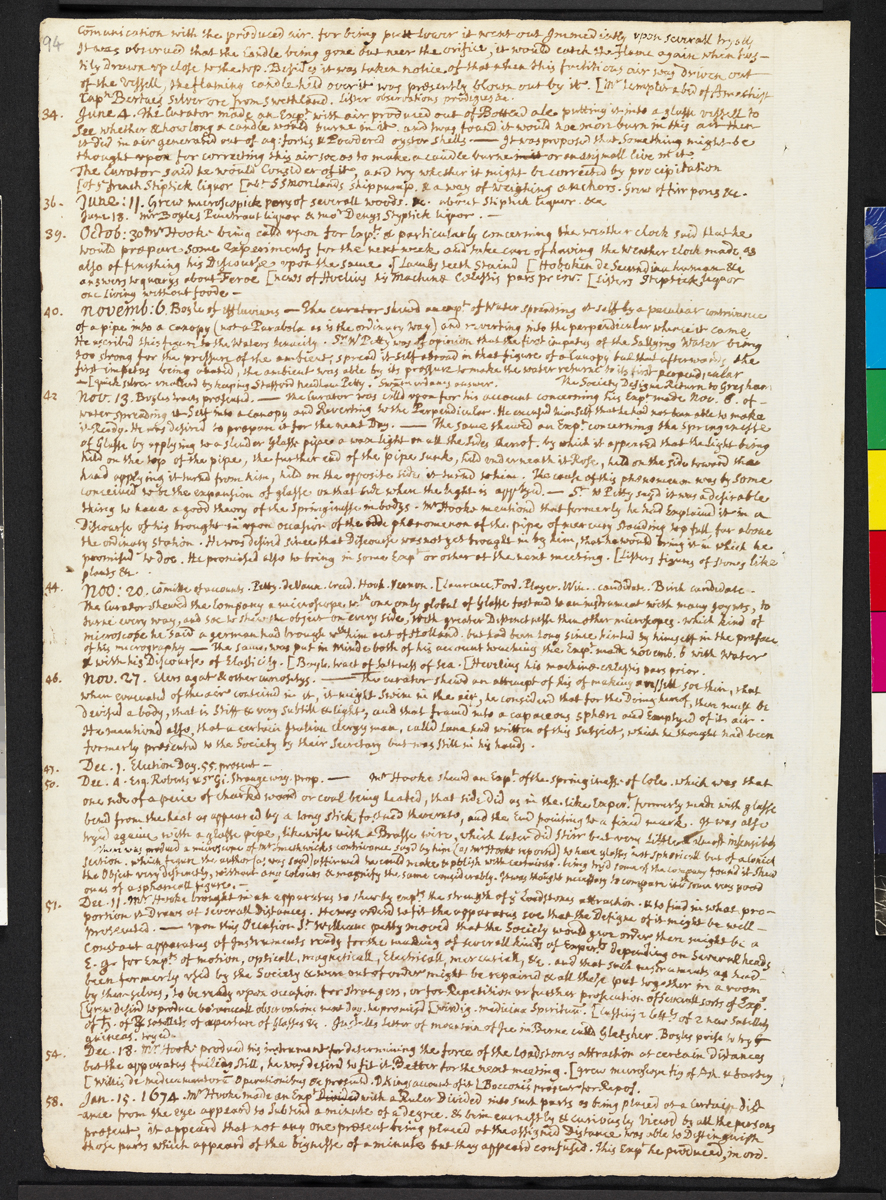 94
Comunication with the produced air. for being putt lower it went out Immediatly upon severall tryalls
It was observed that the Candle being gone out neer the orifice, it would catch the flame again when has-
tily drawn up close to the top. Besides it was taken notice of that when this factitious air was driven out
of the vessell, the flaming candle held over it was presently blown out by it. [Mr Templer abt of
Capt Bertues Silver ore from Swethland. Lister observations &c.
34. June 4. The Curator made an Expt with air produced out of Botled ale putting it into a glasse vessell to
See whether & how long a candle would burne in it and twas found it would noe more burn in this air then
it did in air generated out of aq: fortis & Powdered oyster shells. — It was proposed that something might be
thought upon for correcting this air soe as to make a candle burne or an animall live in it
The Curator said he would Consider of it, and try whether it might be corrected by precipitation
[of ye french Stiptick Liquor & a way of weighing anchors. Grew of air pores &c.
36. June: 11. Grew microscopick pores of severall woods. &c. about Stiptick Liquor. &ca
June 18. Mr Boyles Liquor & mor Denys Styptick liquor. —
39. Octob: 30 Mr Hooke being calld upon for Expts & particularly concerning the weather clock said that he
would prepare some experiments for the next week and take care of having the weather clock made, as
also of finishing his Discourse upon the same. [Lambs teeth Staind [Hoboken de Secundina humana &c
answers to querys about Feroe [news of Hevelius his Machina Cælestis pars prior. [Listers Stiptick liquor
one Living without foode —
40. Novemb: 6. Boyle of effluviums — The curator shewd an expt of water spreading it self by a peculiar contrivance
of a pipe into a canopy (not a Parabola as is the ordinary way) and reverting into the perpendicular whence it came
He ascribed this figure to the waters tenacity. Sr W Petty was of opinion that the first impetus of the Sallying Water being
too strong for the pressure of the ambient, spread it self abroad in that figure of a Canopy but that afterwards the
first impetus being abated, the ambient was able by its pressure to make the water returne to its first perpendicular
— [quick silver by Stafford Petty. answer. The Society Designe Return to Gresham
42 Nov. 13. Boyles tracts presented. — The Curator was calld upon for his account concerning his Expt made Nov. 6. of
water spreading it Self into a Canopy and Reverting to the Perpendicular. He excused himself that he had not been able to make
it Ready. He was desired to prepare it for the next Day. — The same shewed an Expt concerning the springinesse
of Glasse by applying to a slender Glasse pipe a wax light on all the sides therof. by which it appeared that the Light being
held on the top of the pipe, the further end of the pipe sunk, held underneath it Rose, held on the side toward the
hand applying it turnd from him, held on the opposite side, it turnd to him. The cause of this phænomenon was by some
conceived to be the expansion of glasse on that side when the light is applyed. — Sr W Petty sayd it was a desirable
thing to have a good theory of the Springinesse in bodys. Mr Hooke mentiond that formerly he had Explaind it in a
Discourse of his brought in upon occasion of the odd phænomenon of the pipe of mercury standing top full far above
the ordinary station. He was desird since that Discourse was not yet brought in by him, that he would bring it in which he
promised to doe. He promised also to bring in some Expt or other at the next meeting. [Listers figures of stones like
plants &c.
44. Nov: 20. comitte of accounts. Petty. deVaux. Creed. Hook. Vernon. [Laurence, Ford, Player, Win.. candidate. Birch candidate.
The Curator shewed the Company a microscope wth one only globul of Glasse fastned to an instrument with many joynts, to
turne every way, and soe to shew the object on every side, with greater Distinctnesse then other microscopes. which kind of
microscope he said a german had brought with him out of Holland. but had been long since hinted by himself in the preface
of his micrography — The same was put in minde both of his account touching the Expt made novemb. 6 with water
& with his Discourse of Elasticity. [Boyls tract of Saltness of Sea. [Hevelius his machina cælestis pars prior.
46. Nov. 27. Elers agat & other curiositys. — The curator shewd an attempt of his of making a vessell soe thin, that
when evacuated of the air containd in it, it might Swim in the air, he considerd that for the Doing hereof, ther must be
Devised a body, that is stiff & very subtill & light, and that framd into a capaceous sphere and Emptyed of its air.
He mentiond also, that a certain Italian Clergyman, calld Lana had written of this subject, which he thought had been
formerly presented to the Society by their Secretary but was still in his hands.
47. Dec. 1. Election Day. 55. present —
50. Dec. 4. Esq. Roberts & Sr Gi. Strangeway. prop. — Mr Hooke shewd an Expt of the springiness of Cole. which was that
one side of a peice of charked wood or coal being heated, that side Did as in the like Exper. formerly made with glasse
bend from the heat as appeared by a long stick fastned therunto, and the End pointing to a fixed mark. It was also
tryed againe with a glasse pipe, likewise with a Brasse wire, which Later did stirr but very Little & almost insensibly
There was produced a microscope of Mr contrivance sayd by him (as Mr Hooke reported) to have glasses not sphericall but of a conick
section. which figure the author (as was sayd) affirmed he could make & polish with certainty. being tryd some of the company found it shew
the Object very distinctly, without any colours & magnify the same considerably. It was thought necessary to compare it to some very good
ones of a sphæricall figure. —
51. Dec. 11. Mr Hooke brought in an apparatus to shew by expts the strength of ye Loadstones attraction. & to find in what pro-
portion it Draws at severall Distances. He was orderd to fitt the apparatus soe that the Designe of it might be well
prosecuted. — upon this Occation Sr William petty moved that the Society would give order ther might be a
Constant apparatus of Instruments ready for the making of severall kinds of Experts depending on Severall heads
E. g. for Expts of motion, opticall, magneticall, Electricall, mercuriall, &c. and that such instruments as had
been formerly used by the Society & were out of order might be repaired & all these put together in a room
by themselves, to be ready upon occation for strangers, or for Repetition or further prosecution of severall sorts of Expts
[Grew desird to produce botanicall observations next day. he promised [Wirdig. medicina Spirituum. [Cassini 2 letts of 2 new Satellits
of ♄. of & satellits of aperture of Glasses &c. Justells letter of mountain of Ice in Berne calld Gletscher. Boyles to try
guineas. tryed
54. Dec. 18. Mr Hooke produced his instrument for determining the force of the Loadstones attraction at certain distances
but the apparatus failing still, he was desired to fit it Better for the next meeting. [Grew microscop. fig of Ash. &
[Willis de medicamentorum Operationibus &c presented. D. Kings account of it [Boccones present for Repos.
58. Jan. 15. 1674. Mr Hooke made an Expt with a Ruler Divided into such parts as being placed at a Certain dist-
ance from the eye appeard to Subtend a minute of a degree. & being earnestly & curiously Viewd by all the persons
present, it appeard that not any one present being placed at the assigned Distance was able to Distinguish
those parts which appeard of the bignesse of a minute but they appeard confused. This Expt he produced, in ord.